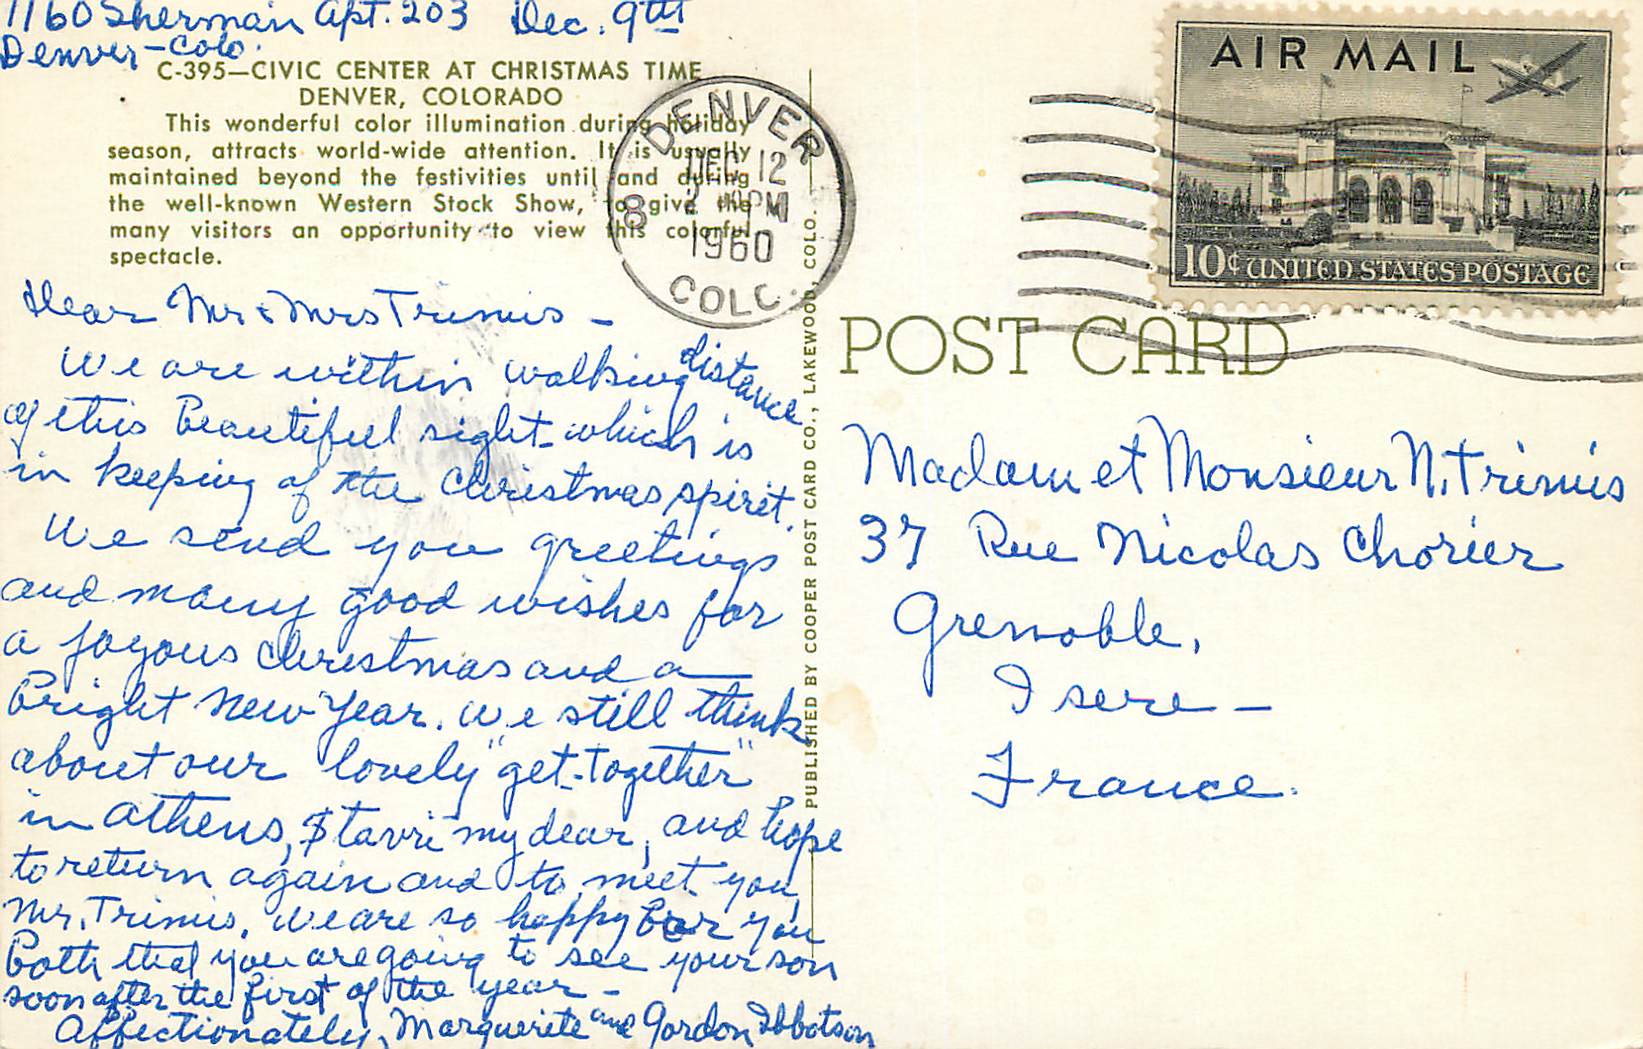 1160 Sherman Apt. 203 Dec. 9th
Denver-Colo.
C-395—CIVIC CENTER AT CHRISTMAS TIME
DENVER, COLORADO
This wonderful color illumination during holiday
season, attracts world-wide attention. It is usually
maintained beyond the festivities until and during
the well-known Western Stock Show, to give the
many visitors an opportunity to view this colorful
spectacle.
Dear Mr & Mrs Trimis -
We are within walking distance
of this beautiful sight which is
in keeping of the Christmas spirit.
We send you greetings
and many good wishes for
a joyous Christmas and a
bright New Year. We still think
about our lovely "get-together"
in Athens, Stavri my dear, and hope
to return again and to meet you,
Mr. Trimis. We are so happy for you
both that you are going to see your son
soon after the first of the year -
Affectionately, Marguerite and Gordon Ibbotson
PUBLISHED BY COOPER POST CARD CO., LAKEWOOD, COLO.
DENVER
DEC 12
PM
1960
8
COLO.
AIR MAIL
10¢ UNITED STATES POSTAGE
POST CARD
Madam et Monsieur N. Trimis
37 Rue Nicolas Chorier
Grenoble,
Isere -
France.